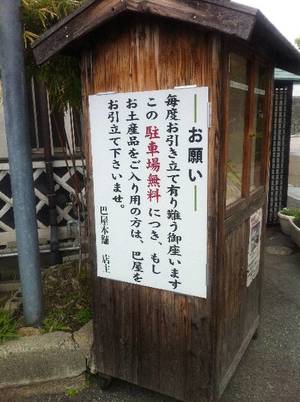 お願い
毎度お引き立て有り難う御座います
この駐車場無料につき、もし
お土産品をご入り用の方は、巴屋を
お引立て下さいませ。
巴屋本舗 店主